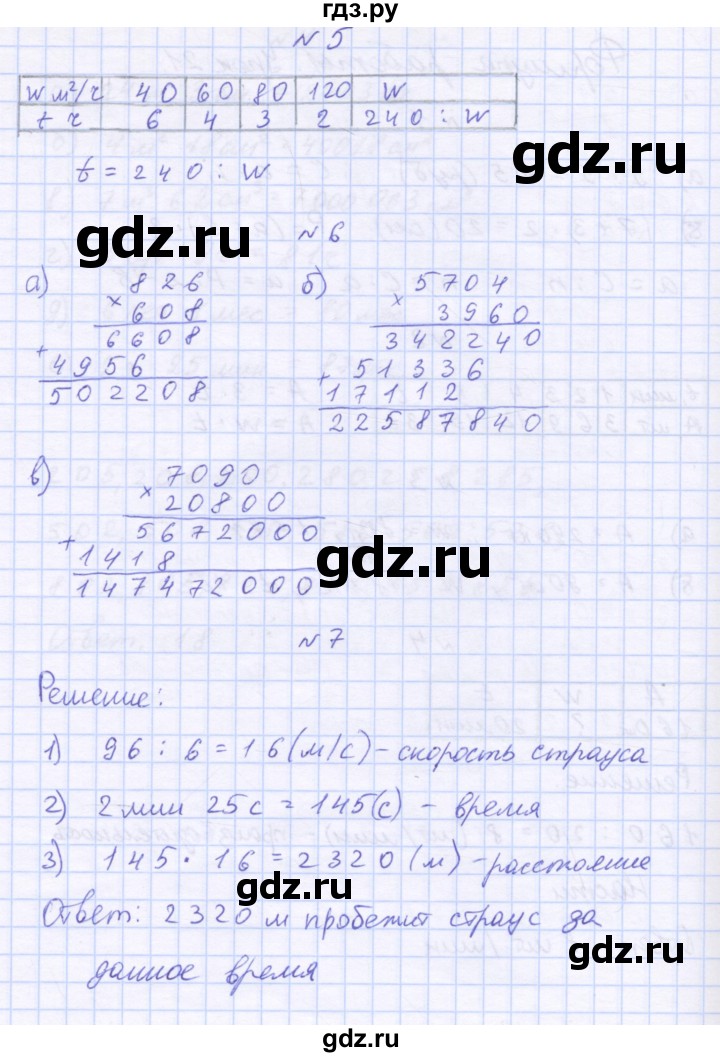 гдз.ру
№5
w м²/ч 40 60 80 120 w
t ч 6 4 3 2 240 : w
t = 240 : w
gdz.ru gdz.ru
№6
а) 826 б) 5704
× 608 × 3960
6608 342240
+ 4956 + 51336
502208 17112
22587840
gdz.ru gdz.ru
в) 7090
× 20800
5672000
+ 1418
147472000
gdz.ru gdz.ru
№7
Решение:
1) 96 : 6 = 16 (м/с) - скорость страуса
gdz.ru
2) 2 мин 25с = 145(с) - время
3) 145 · 16 = 2320 (м) - расстояние
gdz.ru
Ответ: 2320 м пробежит страус да
данное время
gdz.ru
gdz.ru